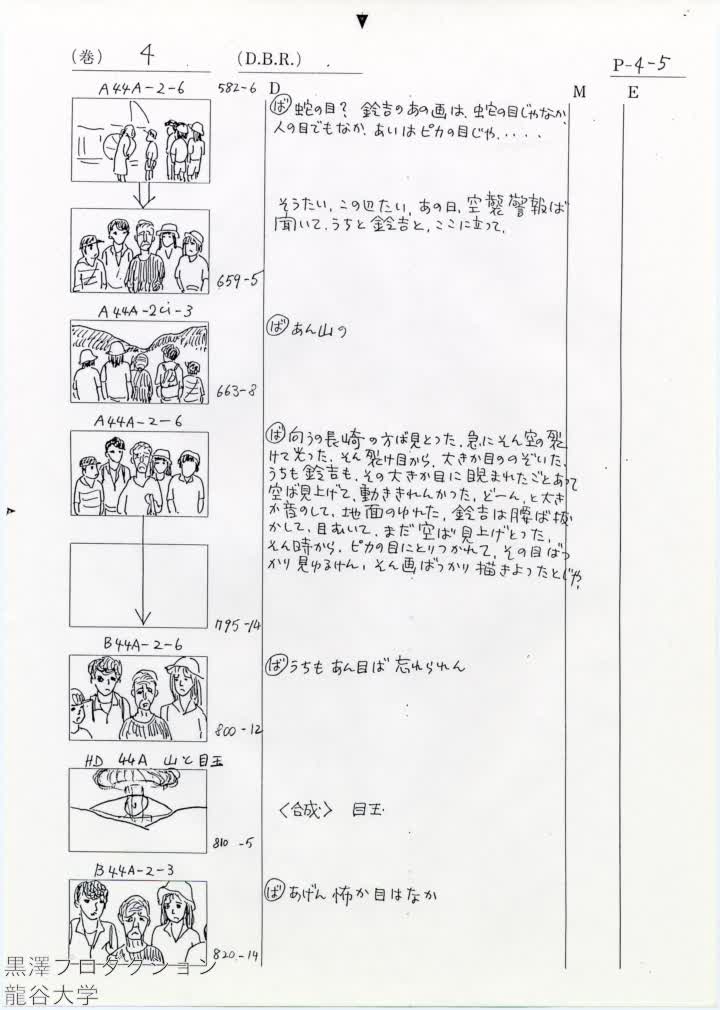 (巻) 4 (D.B.R.) P-4-5
A44A-2-6 582-6 D M E
ば 蛇の目? 鈴吉のあの画は、蛇の目じゃなか、
人の目でもなか、あいはピカの目じゃ.....
そうたい、この辺たい、あの日、空襲警報ば
聞いて、うちと鈴吉と、ここに立って、
659-5
A44A-2ci-3
ば あん山の
663-8
A44A-2-6
ば 向うの長崎の方ば見とった、急にそん空の裂
けて光った、そん裂け目から、大きか目ののぞいた、
うちも鈴吉も、その大きか目に睨まれたごとあって
空ば見上げて、動ききれんかった、どーん、と大き
か音のして、地面のゆれた、鈴吉は腰ば抜
かして、目あいて、まだ空ば見上げとった、
そん時から、ピカの目にとりつかれて、その目ばつ
かり見ゆるけん、そん画ばっかり描きよったとじゃ、
795-14
B44A-2-6
ば うちもあん目ば忘れられん
800-12
HD 44A 山と目玉
〈合成〉 目玉
810-5
B44A-2-3
ば あげん怖か目はなか
820-14
黒澤プロダクション
龍谷大学